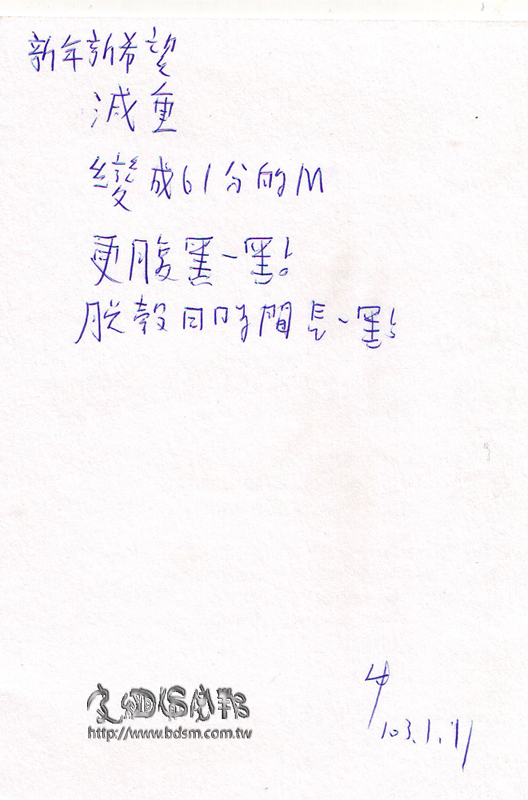 新年新希望
減重
變成61分的M
更腹黑一點
脫殼的時間長一點
103.1.11
皮繩愉虐邦
http://www.bdsm.com.tw